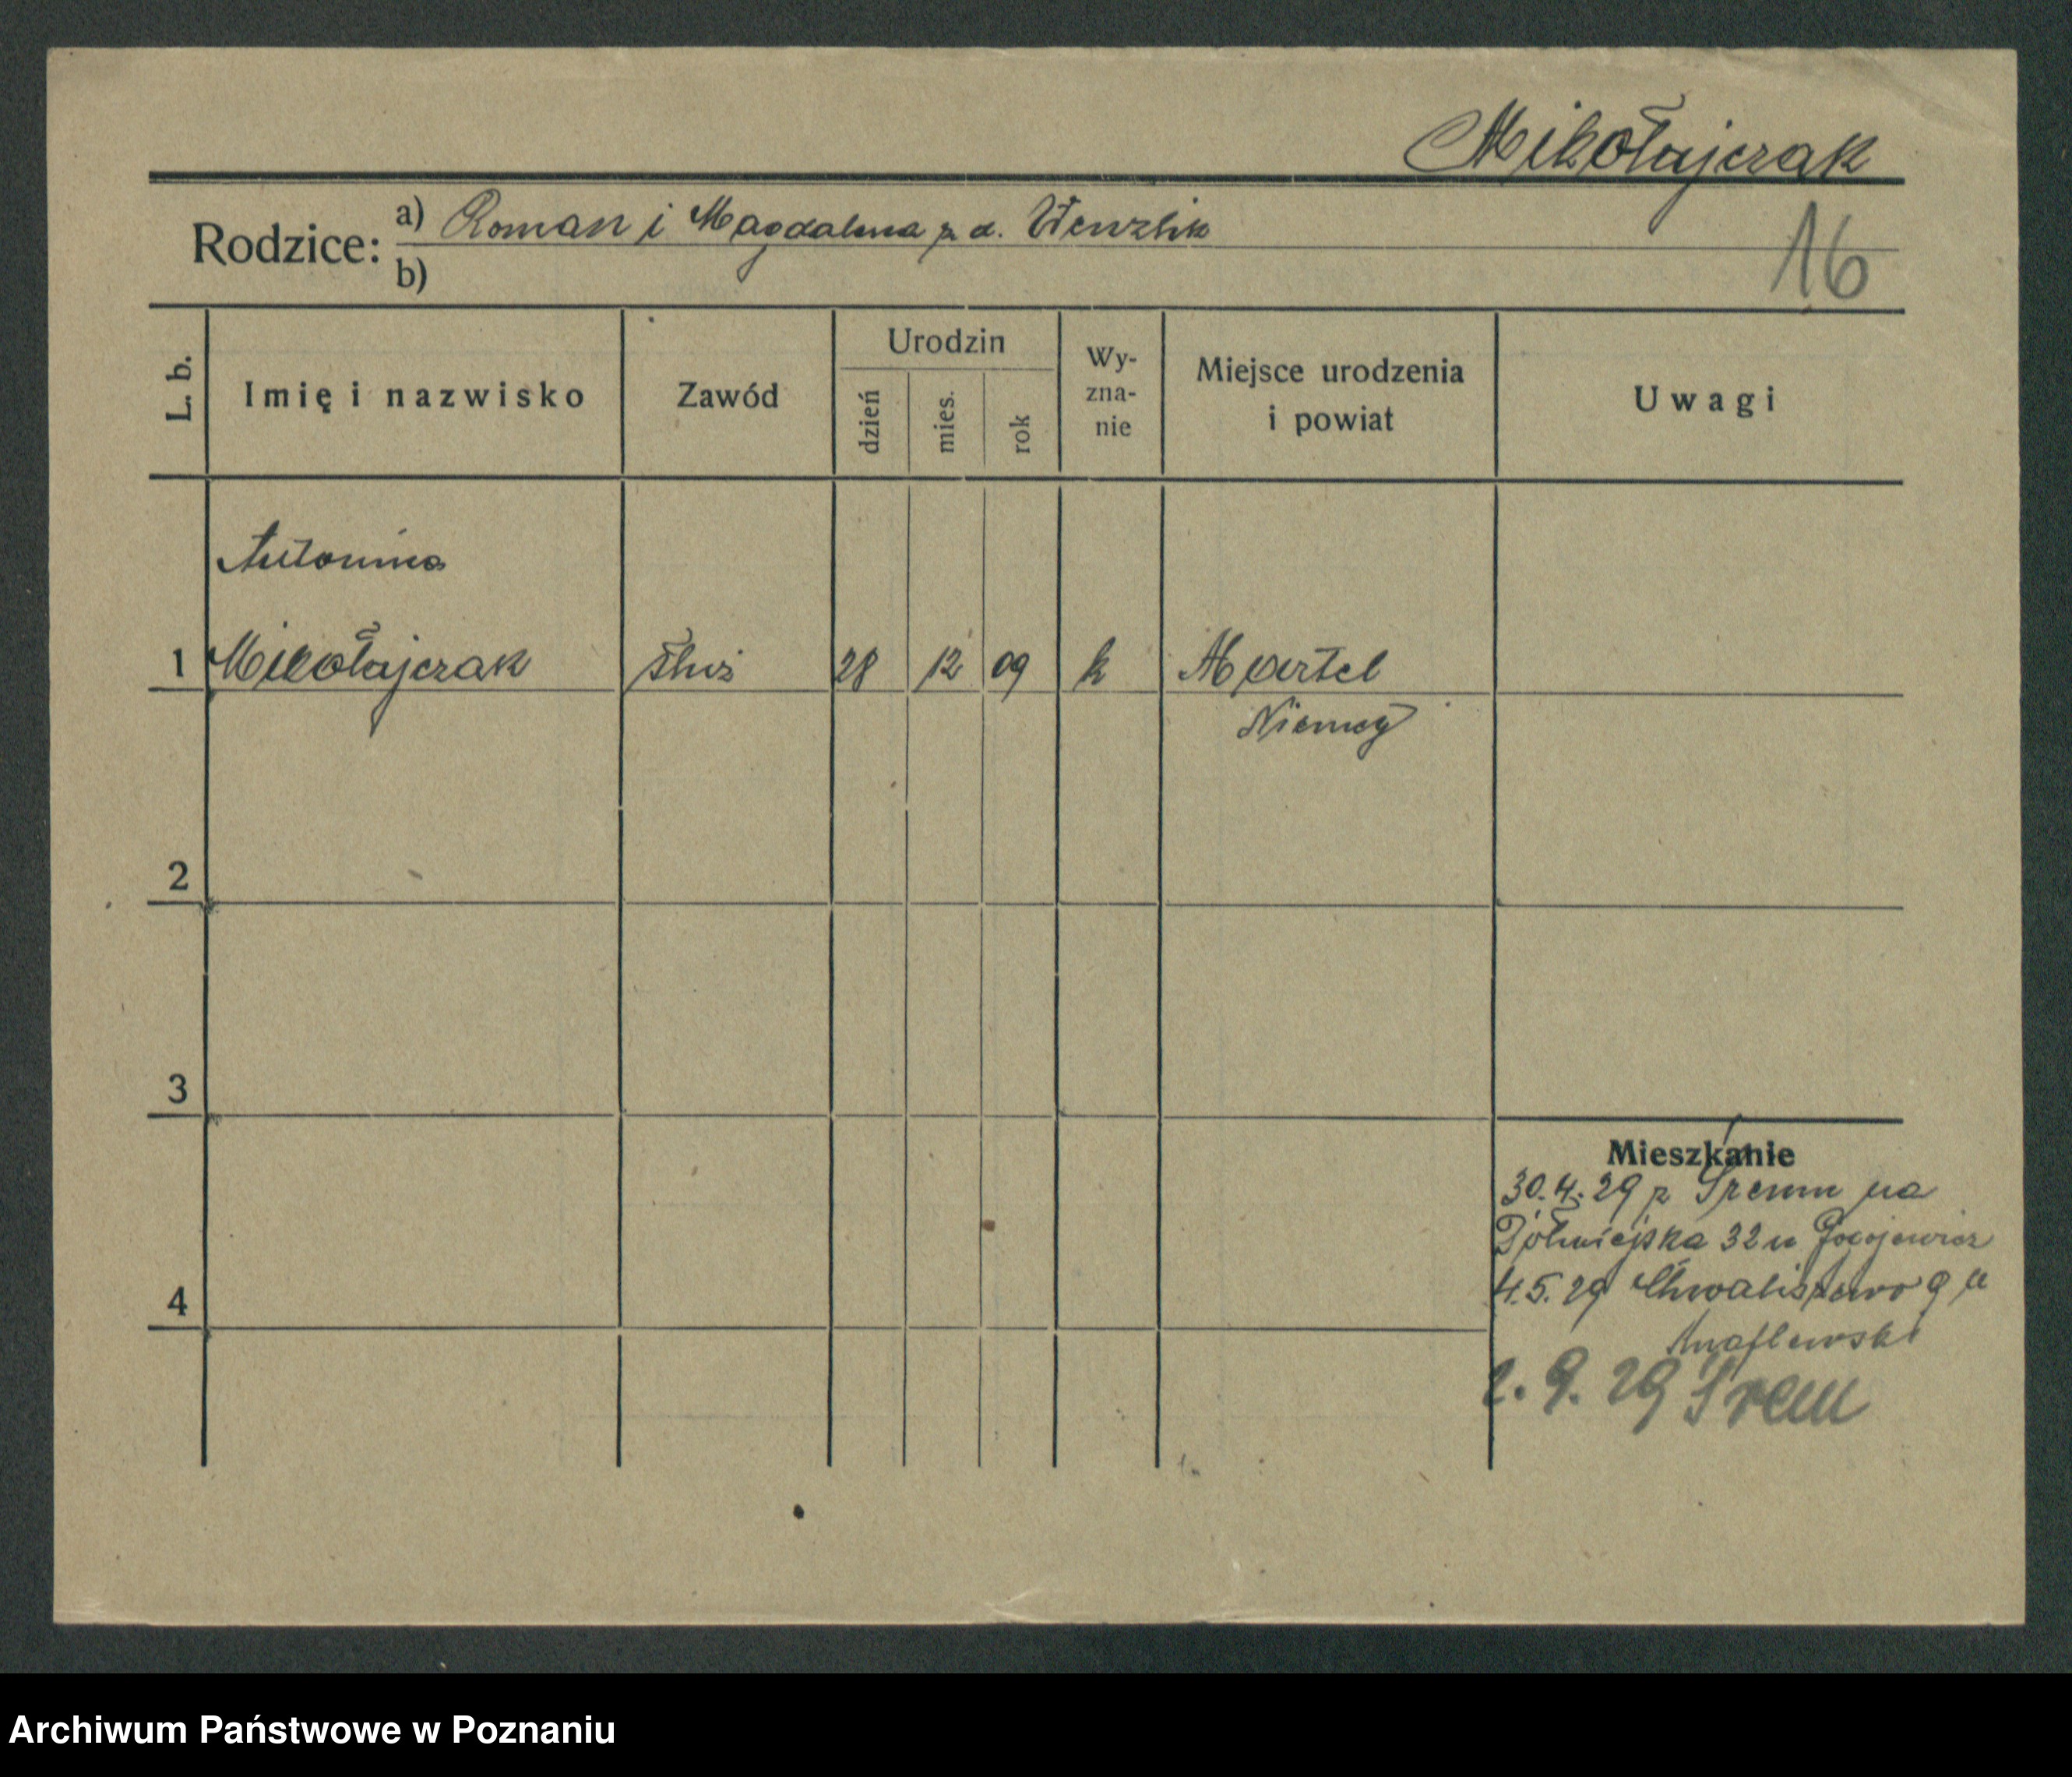 Mikołajczak
Rodzice: a) Roman i Magdalena z d. Wenzlik
16
b)
L. b.
Imię i nazwisko
Zawód
Urodzin
dzień
mies.
rok
Wy-
zna-
nie
Miejsce urodzenia
i powiat
Uwagi
Antonina
1 Mikołajczak służ 28 12 09 k Martel
Niemcy
2
3
4
Mieszkanie
30.4.29 z Śremu na
Półwiejska 32 u
4.5.29 Chwaliszewo 9 u
2.9.29 Śrem
Archiwum Państwowe w Poznaniu